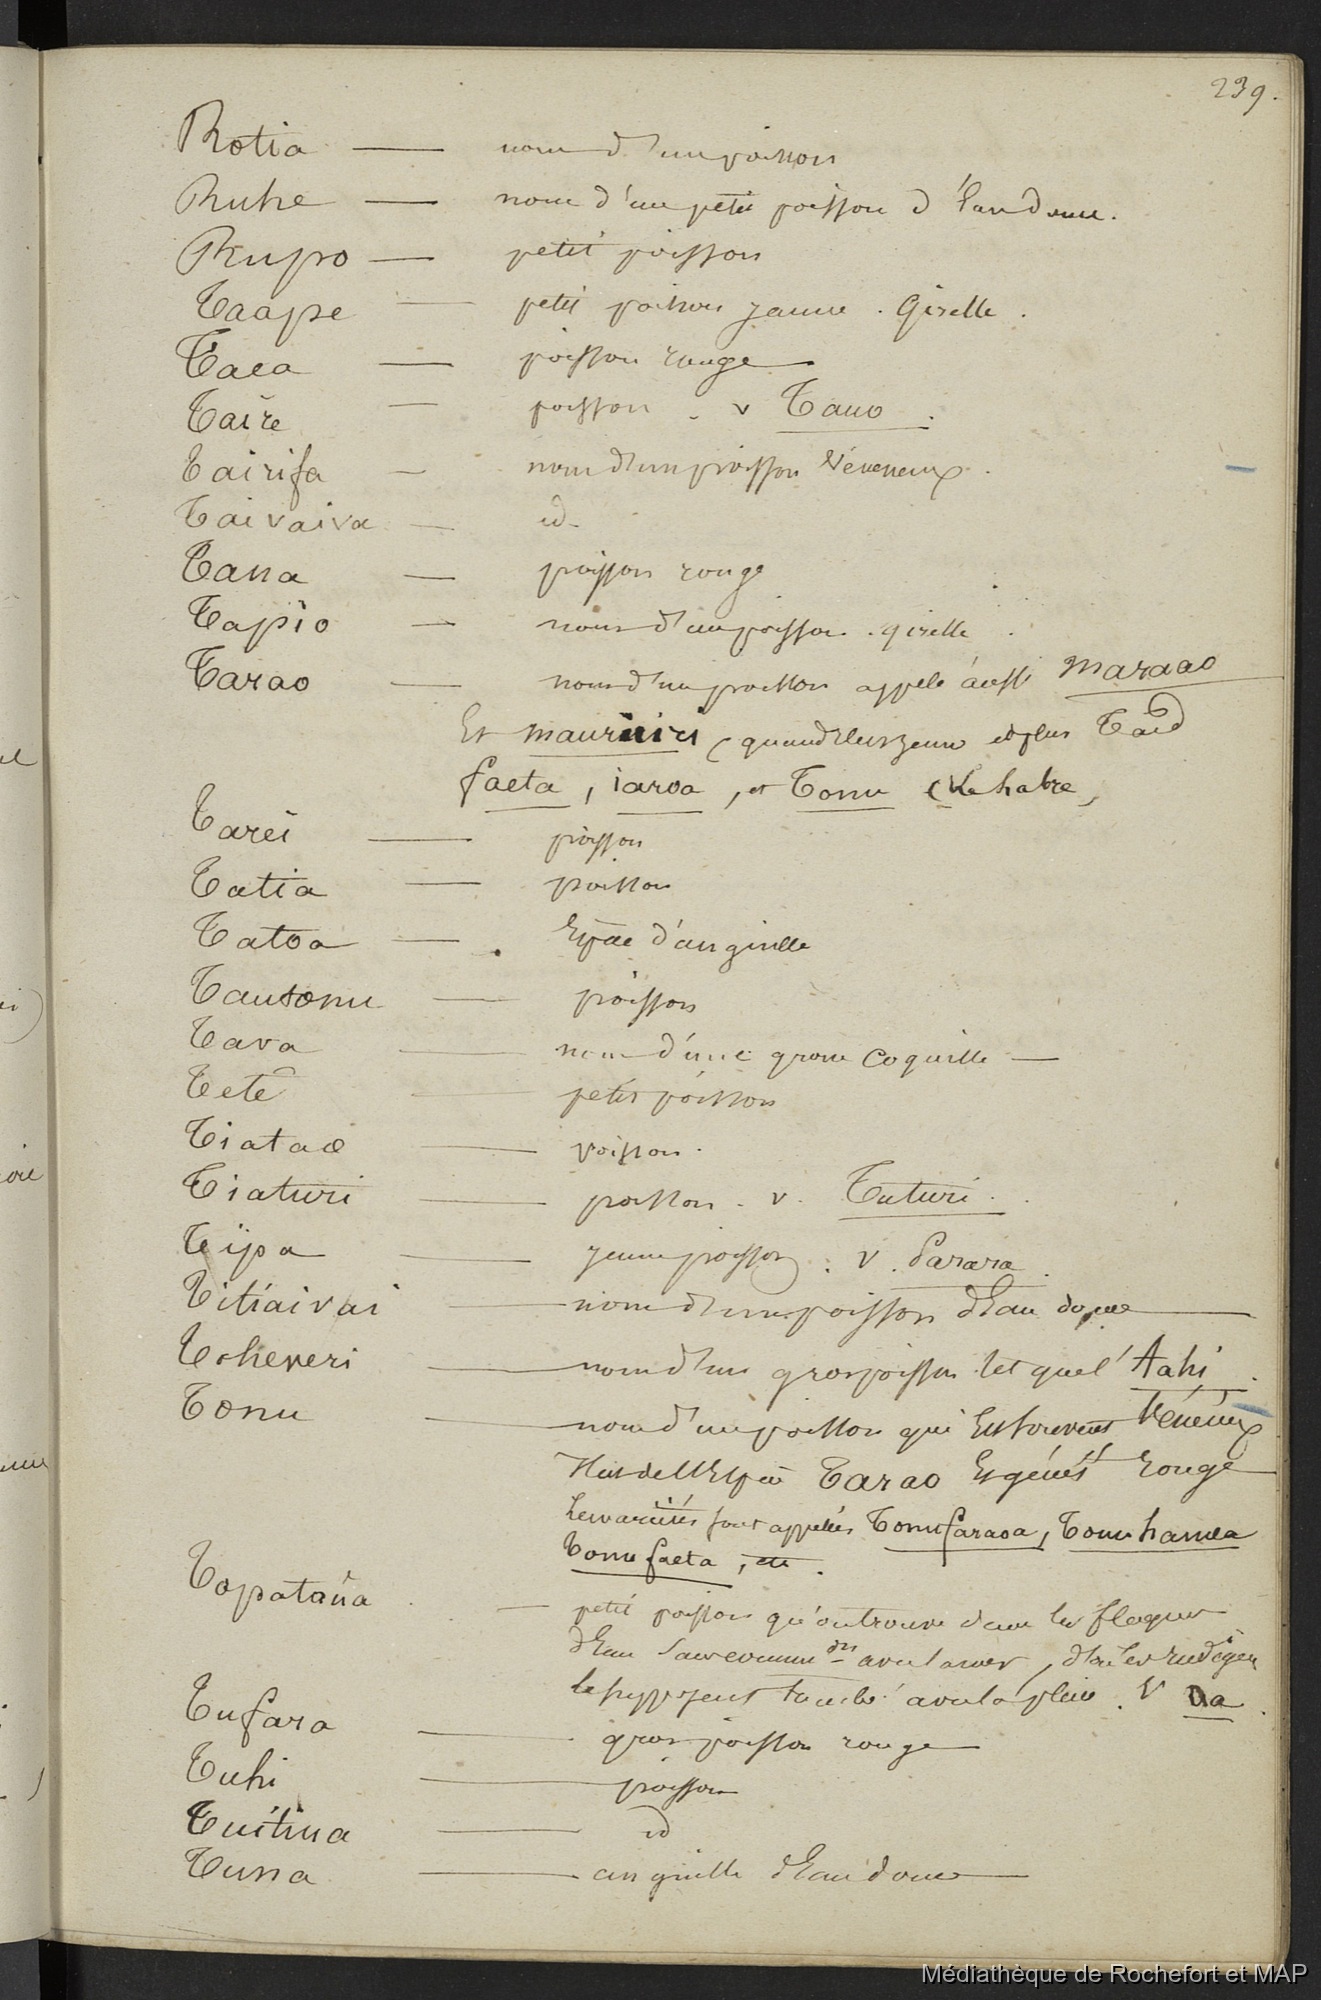 239.
Rotia — nom d'un poisson
Ruhe — nom d'un petit poisson d'Eau douce.
Rupo — petit poisson
Taape — petit poisson jaune. Girelle.
Taea — poisson rouge
Taire — poisson. v Tauo.
Tairifa — nom d'un poisson Vénéneux.
Taivaiva — id.
Tana — poisson rouge
Tapio — nom d'un poisson. girelle.
Tarao — nom d'un poisson appelé aussi Maraao
Et mauriiri (quand il est jeune et plus Tard
faeta, iaroa, et Tonu (Le habre,
Tarei — poisson
Tatia — poisson
Tatoa — Espèce d'anguille
Tautonu — poisson
Tava — nom d'une grosse coquille —
Tete — petit poisson
Tiatae — poisson.
Tiaturi — poisson. v. Tuturi.
Tipa — jeune poisson. V. Parara.
Titiaivai — nom d'un poisson d'Eau douce
Toheveri — nom d'un gros poisson tel que l'Aahi.
Tonu — nom d'un poisson qui Est souvent Vénéneux
Il est de l'Espèce Tarao Et génér.t rouge
les variétés sont appelées Tonufaraoa, Tonu hamea
Tonu faeta, etc.
Topataüa — petit poisson qu'on trouve dans les flaques
d'Eau sans communic.on avec la mer, d'où les indigènes
le supposent tombé avec la pluie. V Ua.
Tufara — gros poisson rouge
Tuhi — poisson
Tuitina — id
Tuna — anguille d'Eau douce
Médiathèque de Rochefort et MAP